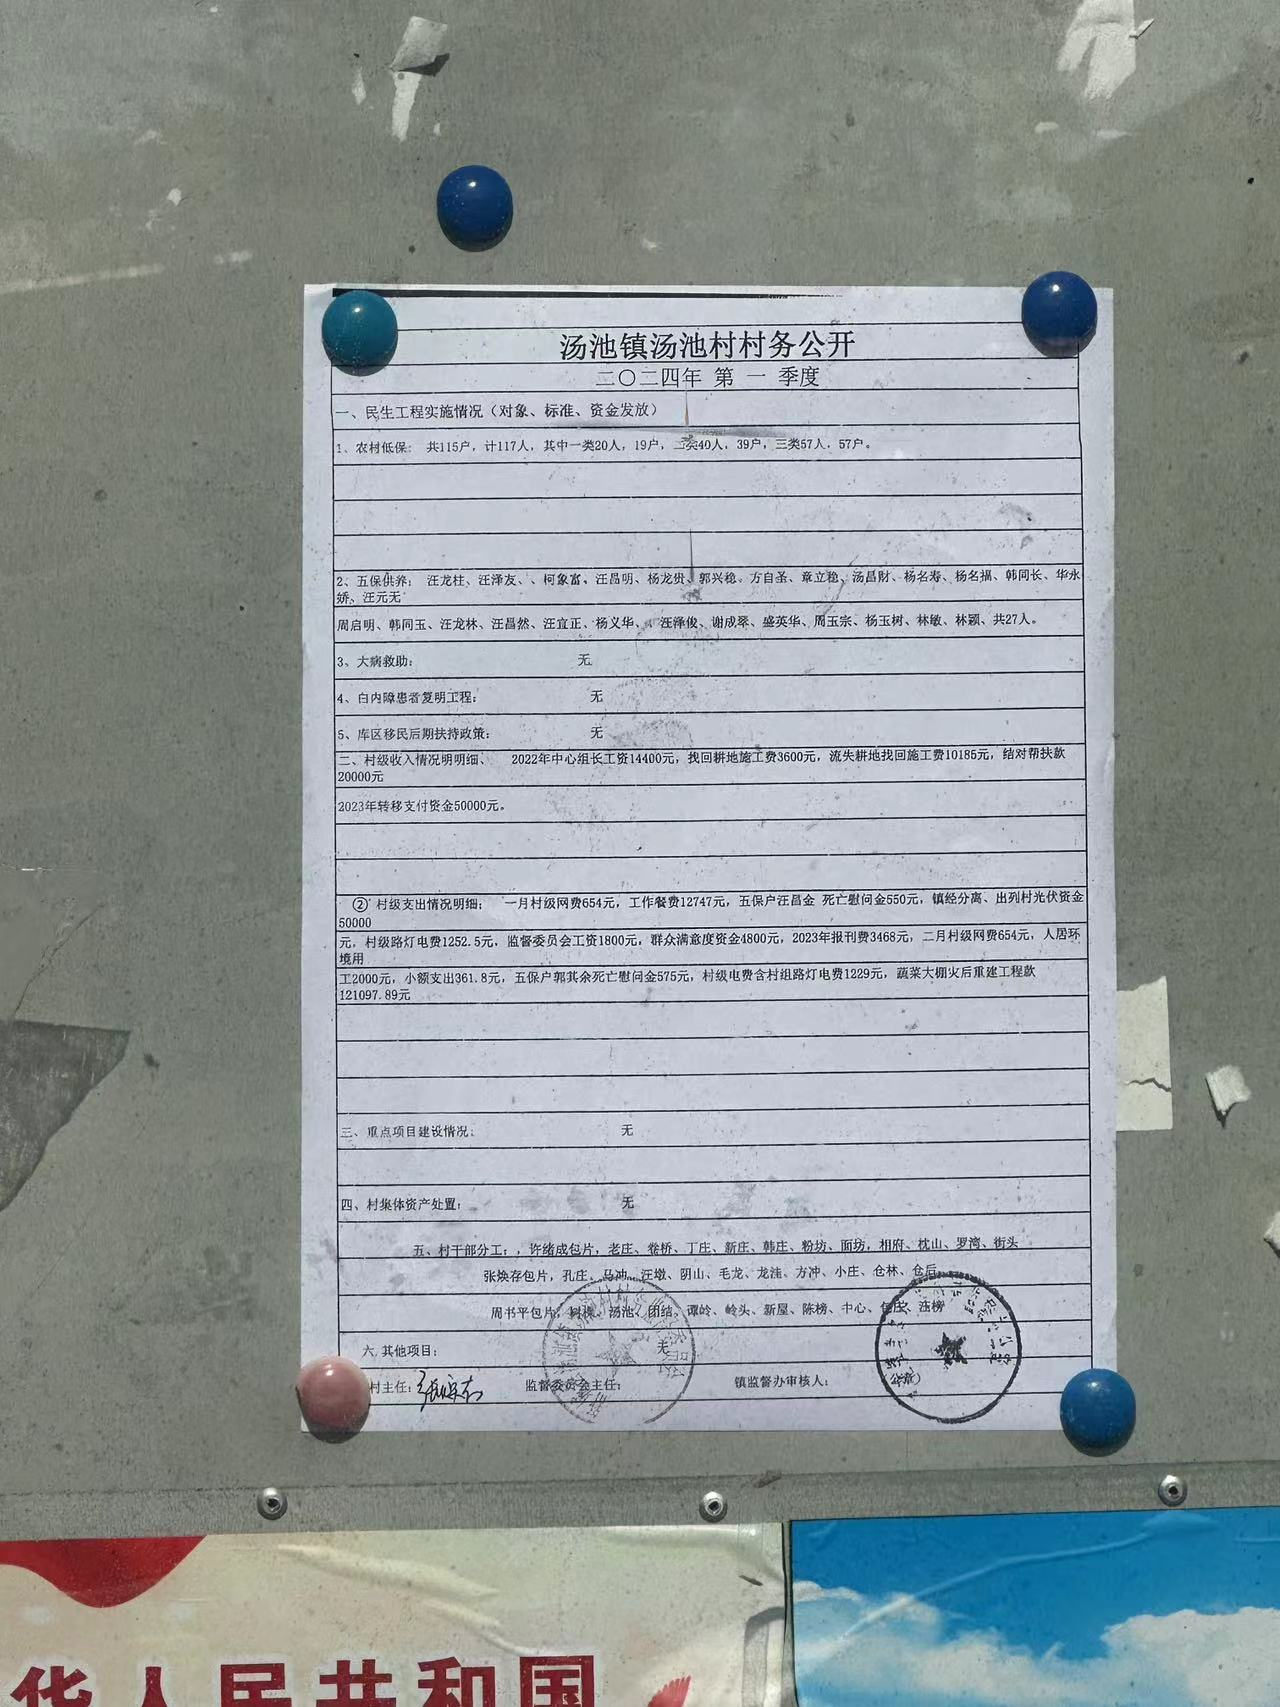 汤池镇汤池村村务公开
二〇二四年 第 一 季度
一、民生工程实施情况（对象、标准、资金发放）
1、农村低保： 共115户，计117人，其中一类20人，19户，二类40人，39户，三类57人．57户。
2、五保供养： 汪龙柱、汪泽友、、柯象富、汪昌明、杨龙贵、郭兴稳、方自圣、章立稳、汤昌财、杨名寿、杨名福、韩同长、华永
娇、汪元无
周启明、韩同玉、汪龙林、汪昌然、汪宜正、杨义华、 汪泽俊、谢成翠、盛英华、周玉宗、杨玉树、林敏、林颖、共27人。
3、大病救助： 无
4、白内障患者复明工程： 无
5、库区移民后期扶持政策： 无
二、村级收入情况明明细、 2022年中心组长工资14400元，找回耕地施工费3600元，流失耕地找回施工费10185元，结对帮扶款
20000元
2023年转移支付资金50000元。
② 村级支出情况明细； 一月村级网费654元，工作餐费12747元，五保户汪昌金 死亡慰问金550元，镇经分离、出列村光伏资金
50000
元，村级路灯电费1252.5元，监督委员会工资1800元，群众满意度资金4800元，2023年报刊费3468元，二月村级网费654元，人居环
境用
工2000元，小额支出361.8元，五保户郭其余死亡慰问金575元，村级电费含村组路灯电费1229元，蔬菜大棚火后重建工程款
121097.89元
三、重点项目建设情况： 无
四、村集体资产处置： 无
五、村干部分工：，许绪成包片，老庄、卷桥、丁庄、新庄、韩庄、粉坊、面坊，相府、枕山、罗湾、街头
张焕存包片，孔庄、马冲、汪墩、阴山、毛龙、龙洼、方冲、小庄、仓林、仓后
周书平包片，树棵、汤池、团结、谭岭、岭头、新屋、陈榜、中心、包庄、连榜
六、其他项目： 无
村主任： 监督委员会主任： 镇监督办审核人： （公章）
华人民共和国